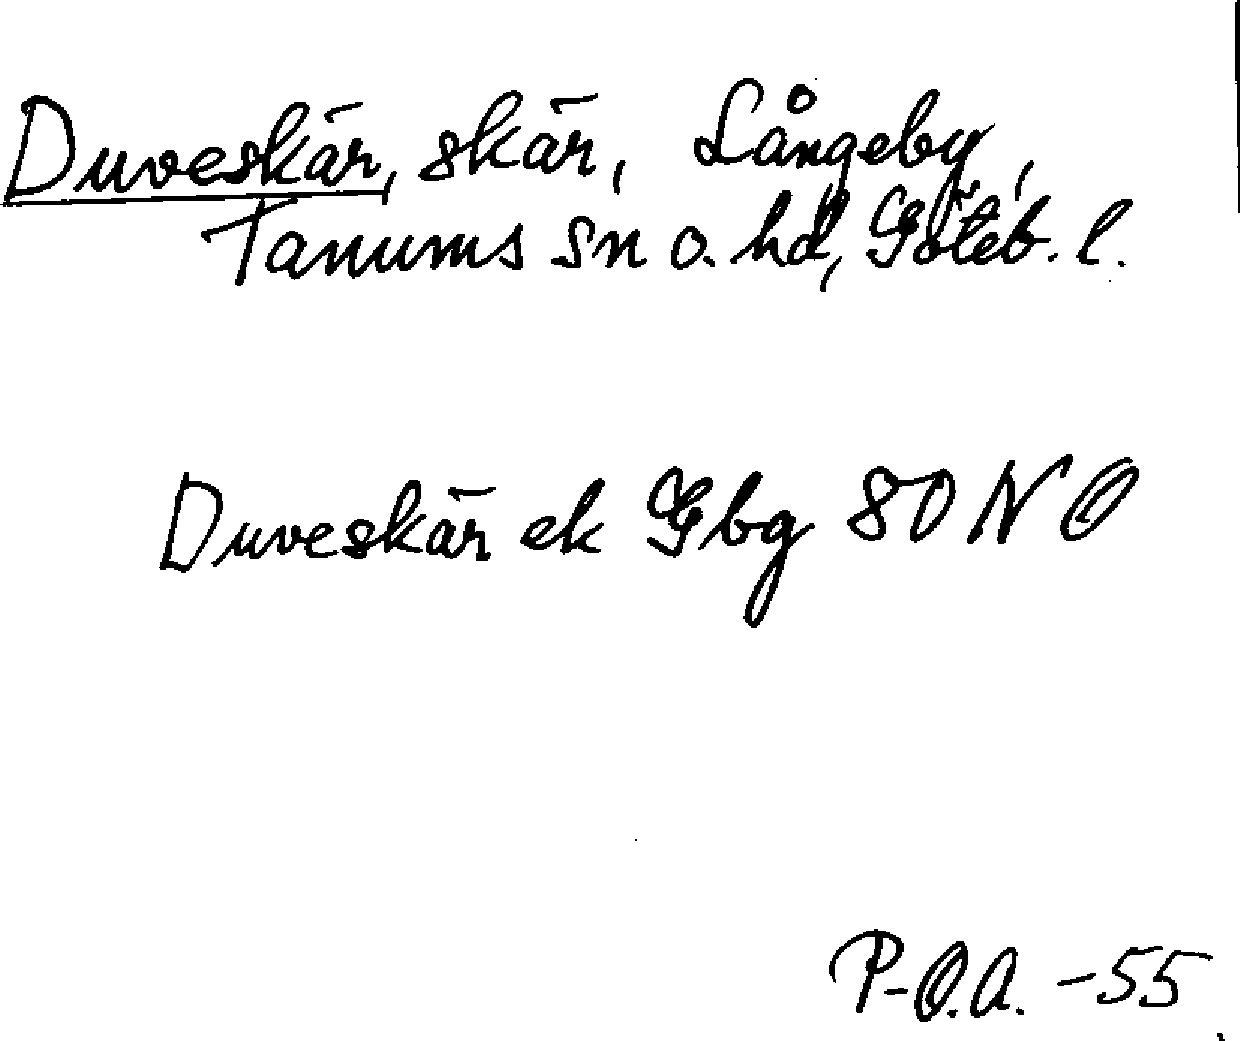 Duveskär, skär, Långeby,
Tanums sn o. hd, Göteb. l.
Duveskär ek Gbg 80 NO
P-O.A. -55